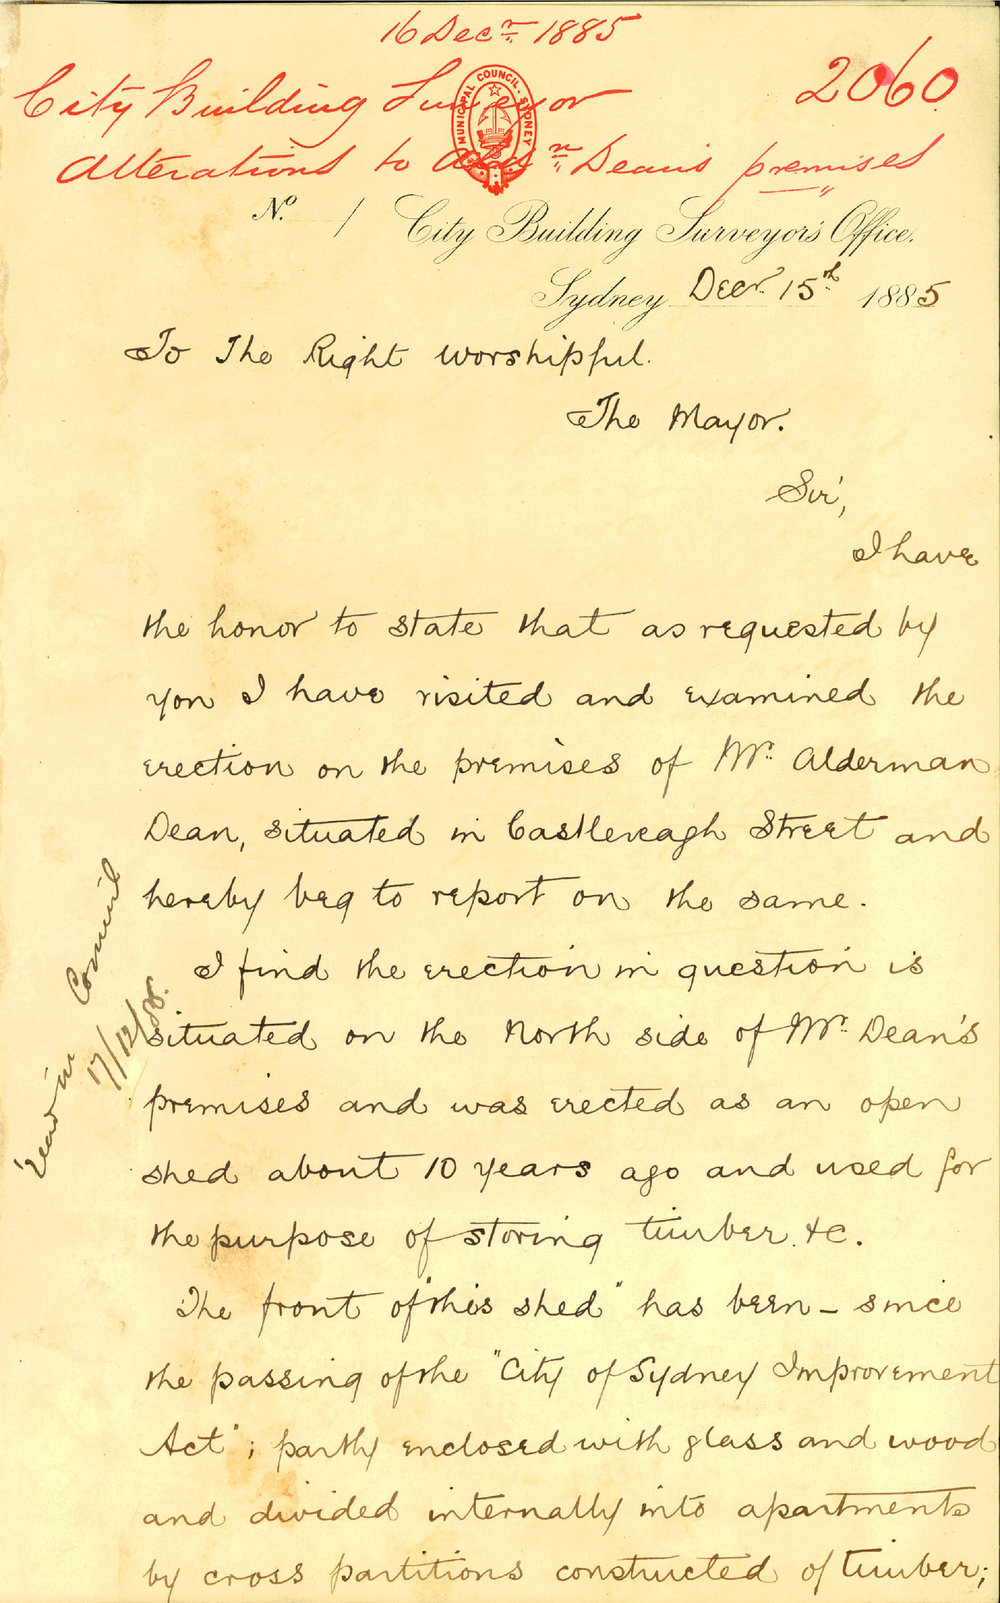 16 Decr. 1885
City Building Surveyor
2060
MUNICIPAL COUNCIL · SYDNEY
Alterations to Aldn. Dean's premises
No. / City Building Surveyor's Office.
Sydney Decr. 15th 1885
To The Right Worshipful.
The Mayor.
Sir,
I have
the honor to state that as requested by
you I have visited and examined the
erection on the premises of Mr. Alderman
Dean, situated in Castlereagh Street and
hereby beg to report on the same.
I find the erection in question is
situated on the North side of Mr. Dean's
premises and was erected as an open
shed about 10 years ago and used for
the purpose of storing timber &c.
The front of "this shed" has been – since
the passing of the "City of Sydney Improvement
Act"; partly enclosed with glass and wood
and divided internally into apartments
by cross partitions constructed of timber;
Read in Council
17/12/85.